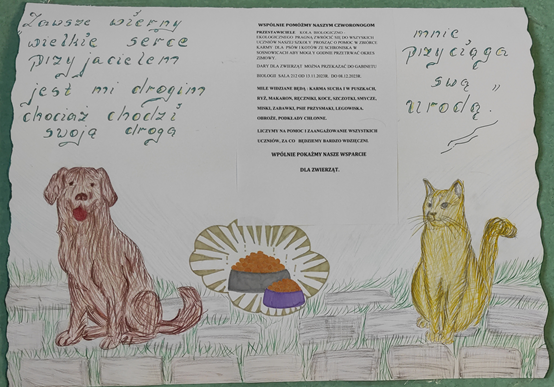 "Zawsze wierny
wielkie serce
przyjacielem
jest mi drogim
chociaż chodzi
swoją drogą
WSPÓLNIE POMÓŻMY NASZYM CZWORONOGOM
PRZEDSTAWICIELE KOŁA BIOLOGICZNO -
EKOLOGICZNEGO PRAGNĄ ZWRÓCIĆ SIĘ DO WSZYSTKICH
UCZNIÓW NASZEJ SZKOŁY PROSZĄC O POMOC W ZBIÓRCE
KARMY DLA PSÓW I KOTÓW ZE SCHRONISKA W
SOSNOWICACH ABY MOGŁY GODNIE PRZETRWAĆ OKRES
ZIMOWY.
DARY DLA ZWIERZĄT MOŻNA PRZEKAZAĆ DO GABINETU
BIOLOGII SALA 212 OD 13.11.2023R. DO 08.12.2023R.
MILE WIDZIANE BĘDĄ : KARMA SUCHA I W PUSZKACH,
RYŻ, MAKARON, RĘCZNIKI, KOCE, SZCZOTKI, SMYCZE,
MISKI, ZABAWKI, PSIE PRZYSMAKI, LEGOWISKA,
OBROŻE, PODKŁADY CHŁONNE.
LICZYMY NA POMOC I ZAANGAŻOWANIE WSZYSTKICH
UCZNIÓW, ZA CO BĘDZIEMY BARDZO WDZIĘCZNI.
WSPÓLNIE POKAŻMY NASZE WSPARCIE
DLA ZWIERZĄT.
mnie
przyciąga
swą
urodą."